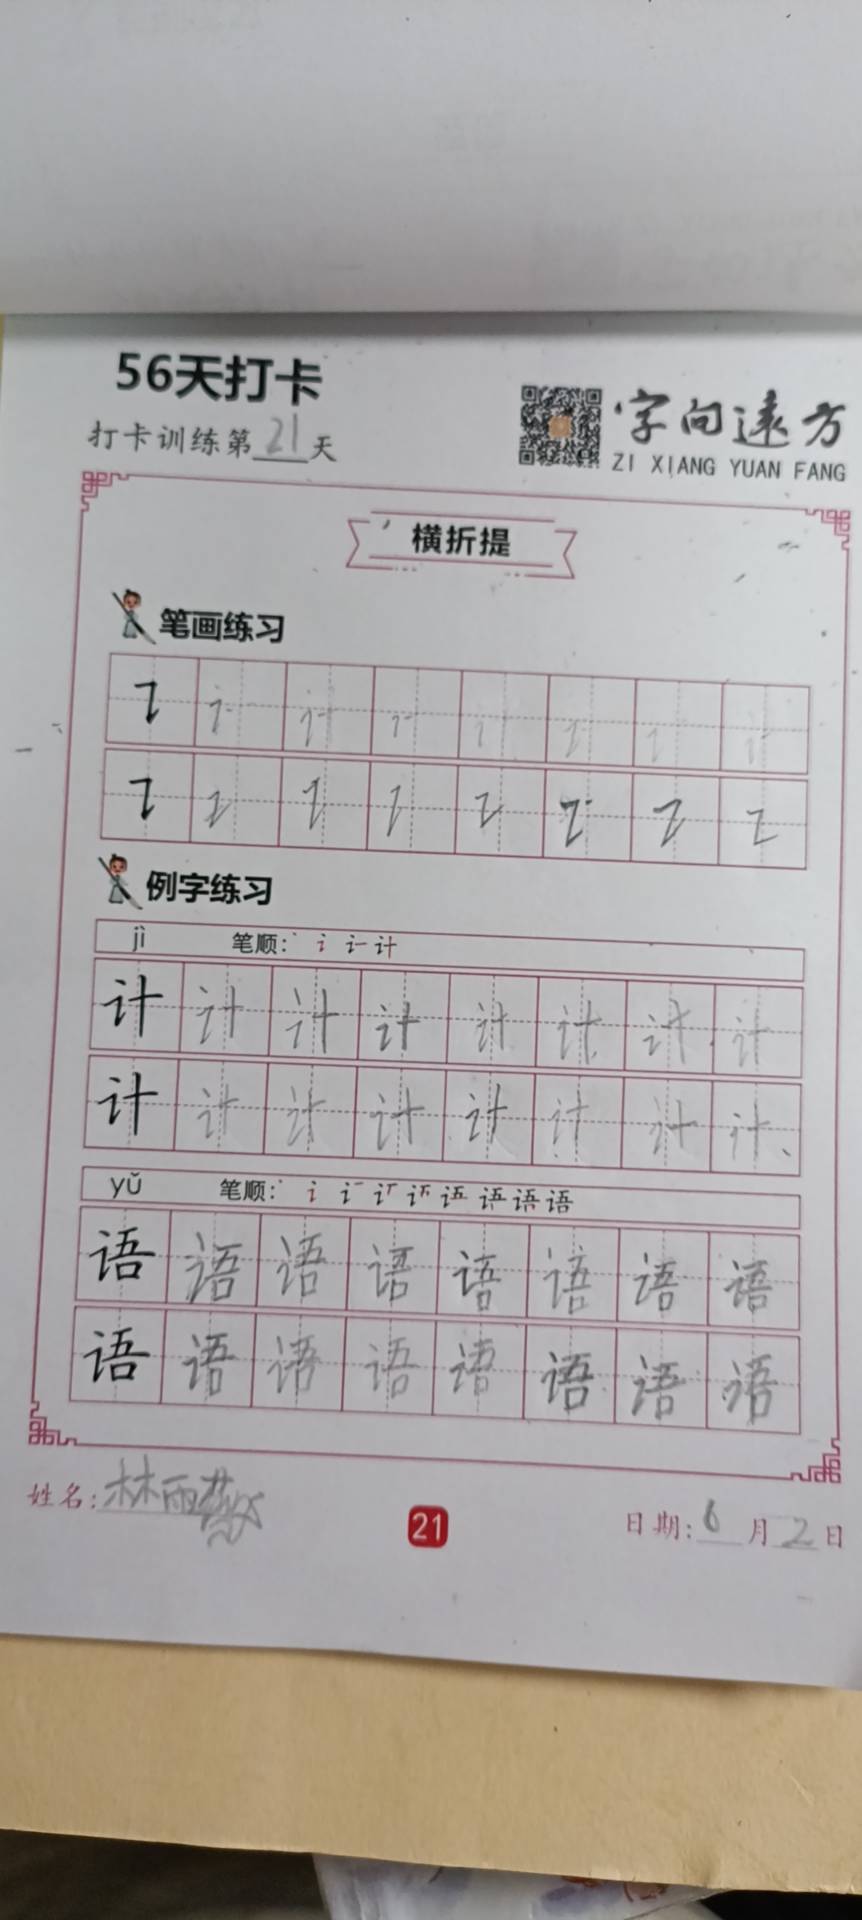 56天打卡
打卡训练第21天
字向远方
ZI XIANG YUAN FANG
横折提
笔画练习
例字练习
jì 笔顺: 丶 讠 计
计 计 计 计 计 计 计 计
计 计 计 计 计 计 计 计
yǔ 笔顺:
语 语 语 语 语 语 语 语
语 语 语 语 语 语 语 语
姓名:林雨
21
日期:6月2日